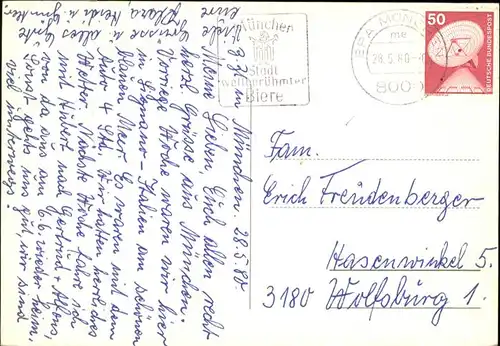 z. Zt. in München. 28.5.80.
Meine Lieben, Euch allen recht
herzl. Grüsse aus München.
Vorige Woche waren wir hier
in Lignano - Italien am schönen
blauen Meer. Es waren mit dem
Auto 4 Std. Wir hatten herrliches
Wetter. Nächste Woche fahre ich
mit Hubert nach Gertrud u. Alfons,
von da aus am 6.6. wieder heim.
Sonst geht's uns gut, wir sind
viel unterwegs!
Grüsse u. alles Gute
Eure
Klara, Heidi u. Gunter
München
Stadt
weltberühmter
Biere
28.5.80
800
50
DEUTSCHE BUNDESPOST
Fam.
Erich Freudenberger
Hasenwinkel 5.
3180 Wolfsburg 1.